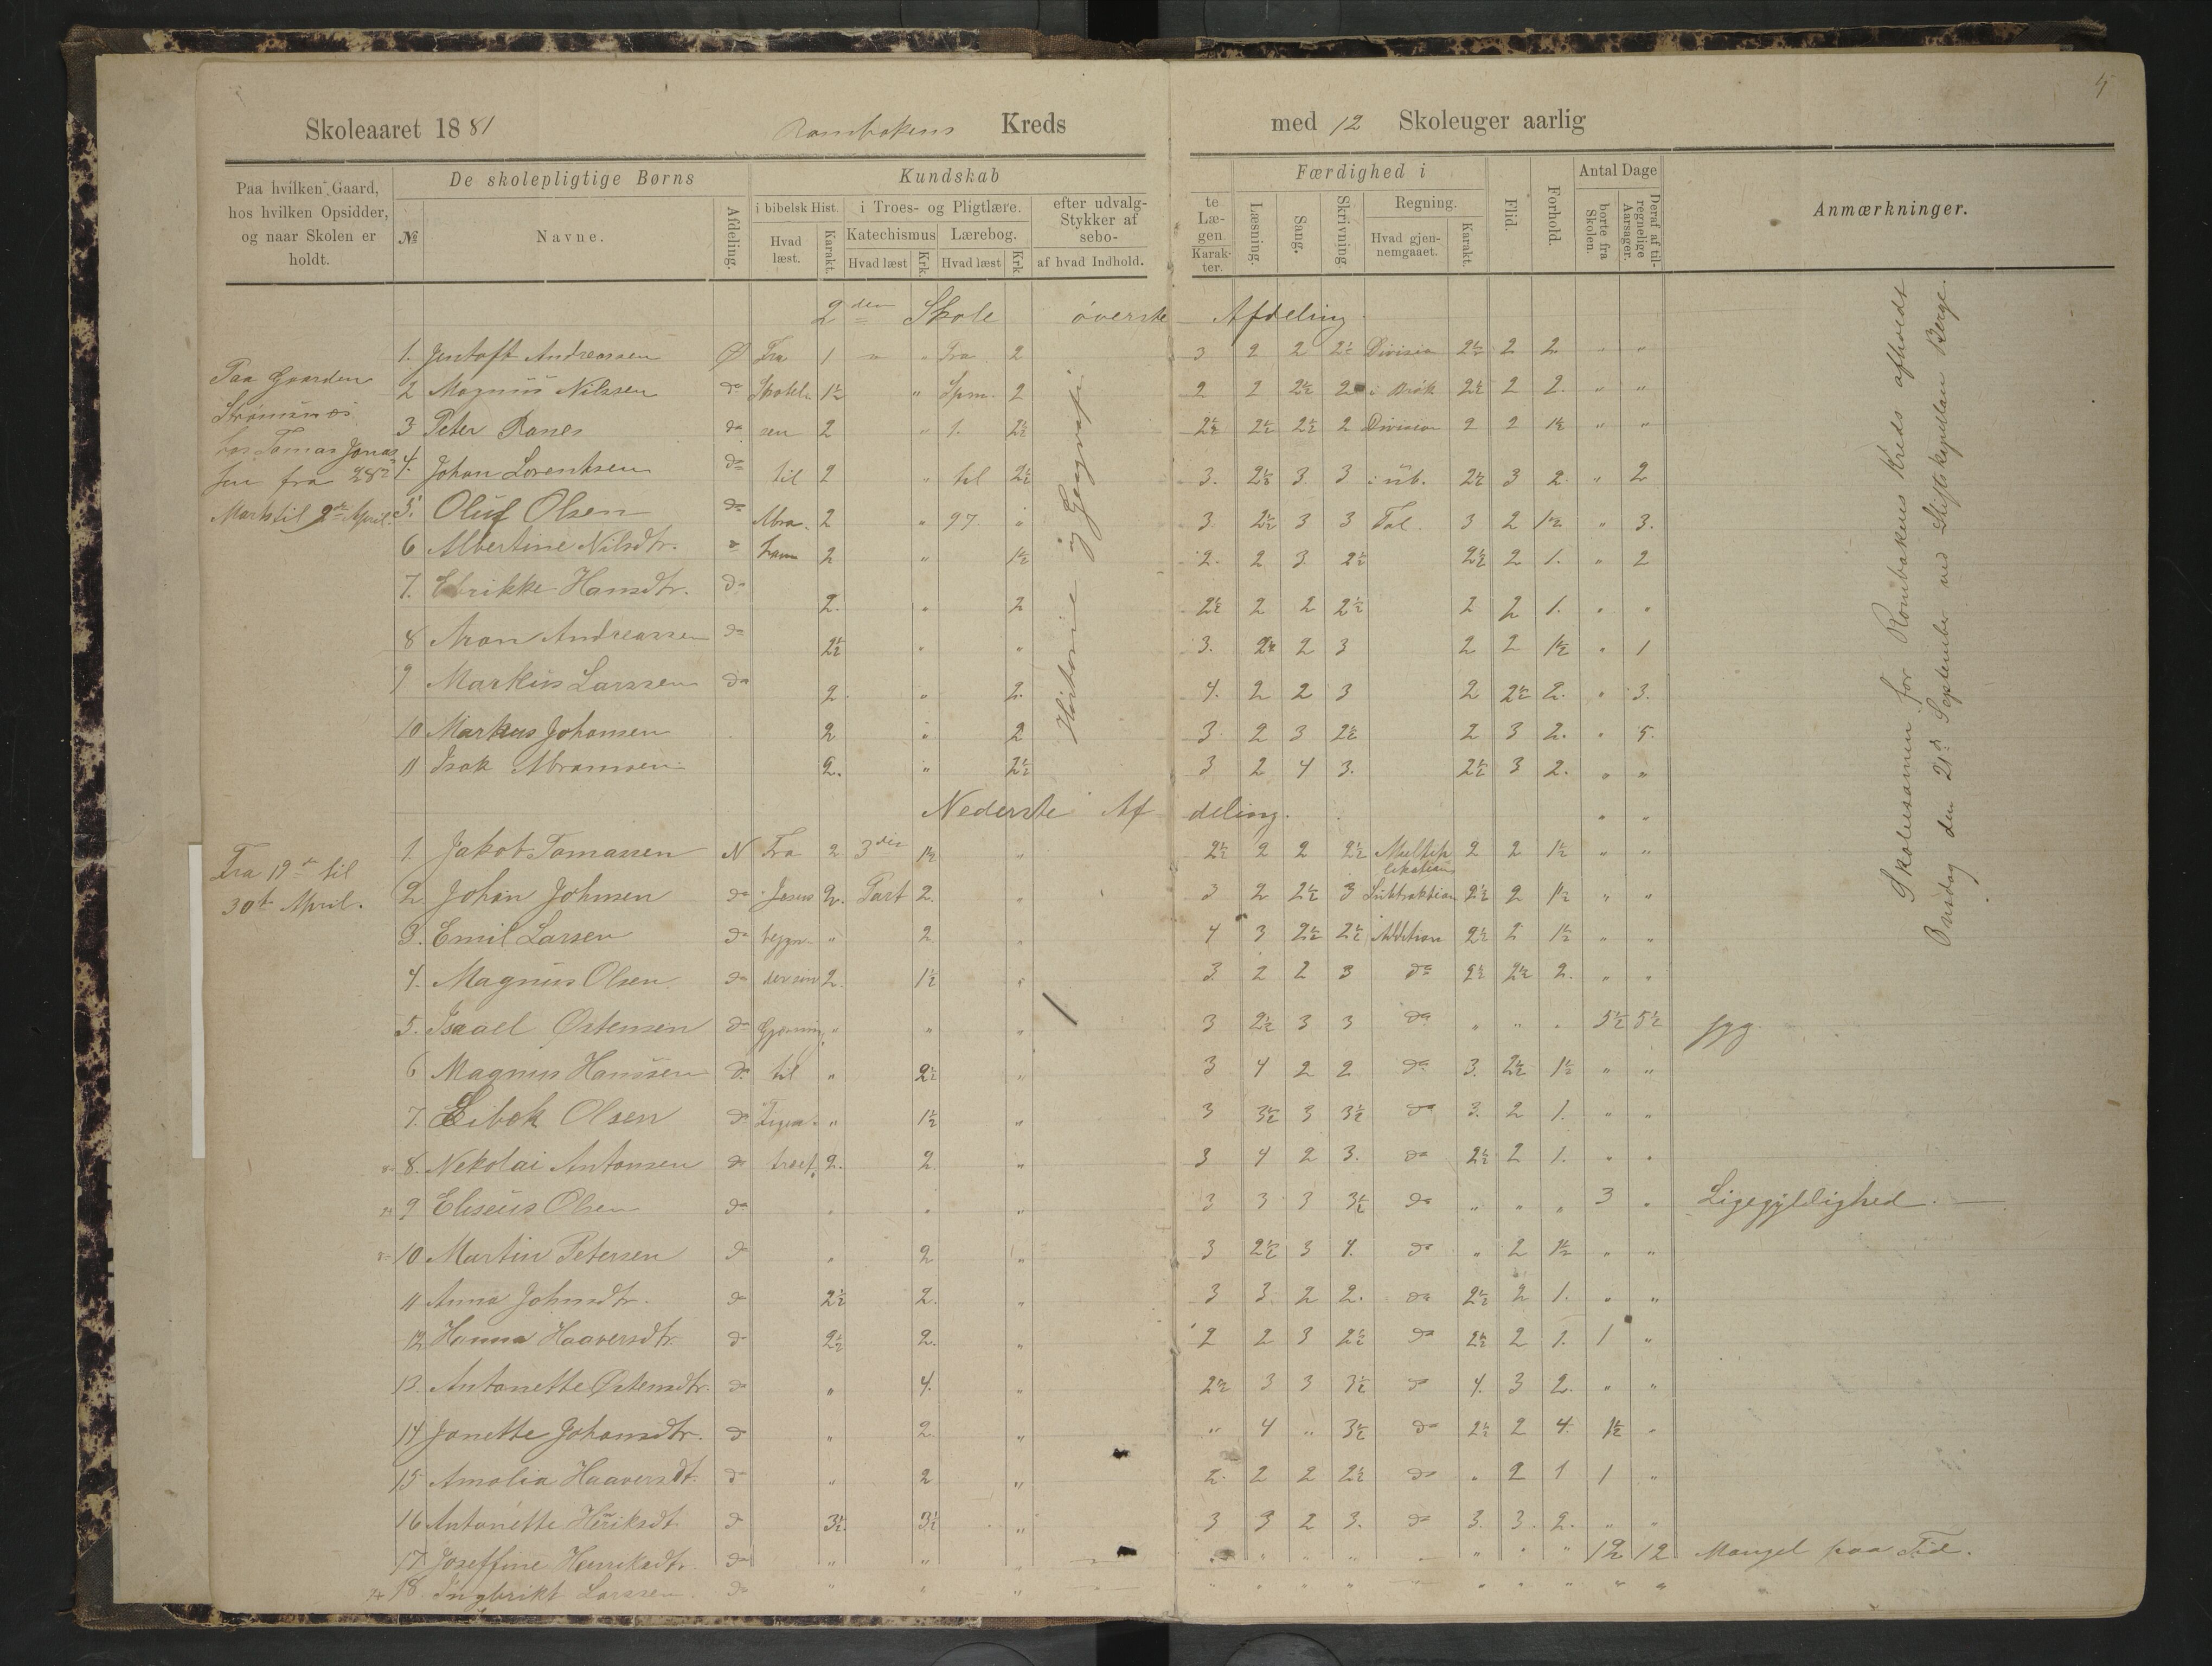 4
Skoleaaret 1881 Rombakens Kreds med 12 Skoleuger aarlig
Paa hvilken Gaard, hos hvilken Opsidder, og naar Skolen er holdt.
De skolepligtige Børns
№ Navne. Afdeling.
Kundskab
i bibelsk Hist. i Troes- og Pligtlære. efter udvalg- te
Stykker af Læ-
sebo- gen
Hvad læst. Karakt. Katechismus Lærebog.
Hvad læst Krk. Hvad læst Krk. af hvad Indhold. Karak- ter.
Færdighed i
Læsning. Sang. Skrivning. Regning.
Hvad gjennemgaaet. Karakt.
Flid. Forhold.
Antal Dage
borte fra Skolen. Deraf af tilregnelige Aarsager.
Anmærkninger.
2den Skole øverste Afdeling
Paa Gaarden
Strømsnæs
hos Tomas Jonas
sen fra 28de
Marts til 9de April.
1. Jentoft Andreassen Ø Fra 1 " " Fra 2 3 2 2 2½ Division 2½ 2 2 " "
2 Magnus Nilssen do Skabel 1½ " Spm. 2 2 2 2½ 2 i Brøk 2½ 2 2. " "
3 Peter Ranes do sen 2 " 1. 2½ 2½ 2½ 2½ 2 Division 2 2 1½ " "
4. Johan Lorentsen do til 2 " til 2½ 3. 2½ 3 3 i ub. 2½ 3 2 " 2
5. Oluf Olsen do Abra- 2 " 97 " 3 2½ 3 3 Tal. 3 2 1½ " 3.
6 Albertine Nilsdtr. " ham 2 " 1½ 2. 2 3 2½ 2½ 2 1. " 2
7. Hansdtr. do 2. " 2 2½ 2 2 2½ 2 2 1. " "
8 Aron Andreassen do 2½ " " 3. 2 2 3 2 2 1½ " 1
9 Markus Larssen do 2. " 2. 4. 2 2 3 2 2½ 2. " 3.
10 Markus Johansen 2 " 2 3. 2 3 2½ 2 3 2. " 5.
11 Isak Abramsen 2. " 2½ 3 2 4 3. 2½ 3 2. " "
Historie og Geografi
Nederste Afdeling. " "
Fra 19de til
30te April.
1. Jakob Tomassen N Fra 2 3die 1½ " 2½ 2 2 2½ Multiplikation 2 2 1½ " "
2. Johan Johnsen do Jesus 2. Part 2. " 3 2 2½ 3 Subtraktion 2½ 2 1½ " "
3. Emil Larsen do begyn- " 2 " 4 3 2½ 2½ Addition 2½ 2 1½ " "
4. Magnus Olsen do der sin 2. 1½ " 3. 2 2 3 do 2½ 2½ 2. " "
5. Isaael Østensen do Gjerning " " " 3 2½ 3 3 do " " " 5½ 5½ syg
6 Magnus Hanssen do til " 2½ " 3 4 2 2 do 3. 2½ 1½ " "
7. Olsen do " 1½ " 3 3½ 3 3½ do 3. 2 1. " "
8. Nekolai Antonsen do træet 2. 2. " 3 4 2 3. do 2½ 2 1. " "
9 Eliseus Olsen do " " " 3 3 3 3½ do " " " 3 " Ligegyldighed.
10 Martin Petersen do " 2 " 3 2½ 3 4. do " 2 1½ " "
11 Anna Johnsdtr. do 2½ 2. " 3 3. 2 2. do 2½ 2 1. " "
12. Hanna Haaversdtr. do 2½ 2. " 2 2 3 2½ do 2½ 2 1. 1 "
13. Antonette Østensdtr. do " 4. " 2½ 3 3 3½ do 4. 3 2. " "
14 Janette Johansdtr. do " 2 " " 4 " 3½ do 2½ 2 4. 1½ "
15 Amalia Haaversdt. do " 2 " 2. 2 2 2½ do " 2 1 1 "
16 Antonette Henriksdt do 3½. 3½ " 3 3 2 3. do 3. 3. 2. " "
17. Joseffine Henriksdtr. do " " " " " " " " " " " 12 12 Mangel paa Tid.
18. Ingbrikt Larssen. do " " " " " " " " " " " " "
Skoleexamen for Rombakens Kreds afholdt
Onsdag den 21de September ved Stiftskapellan Berge.